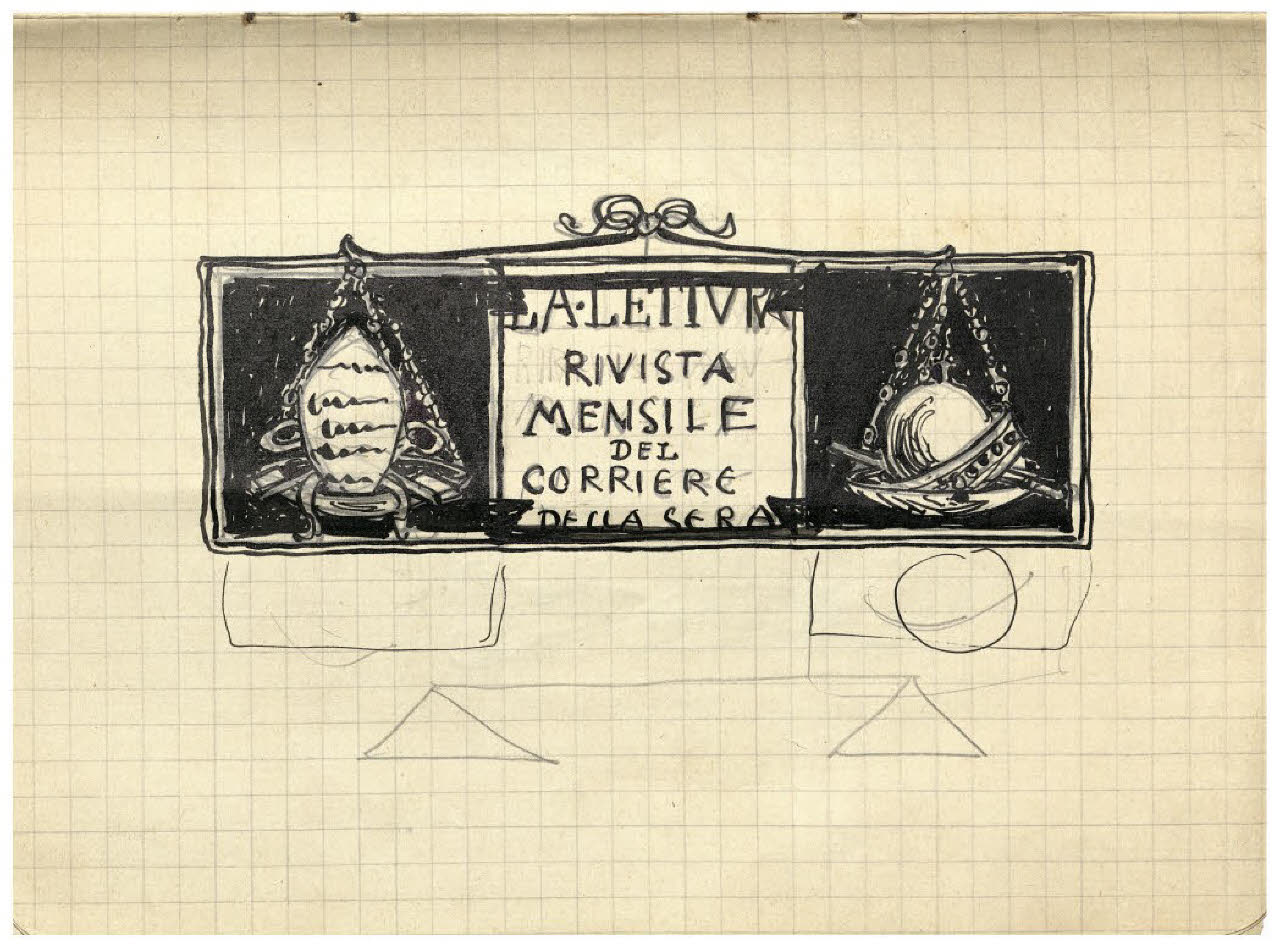 LA·LETTVRA
RIVISTA
MENSILE
DEL
CORRIERE
DELLA SERA